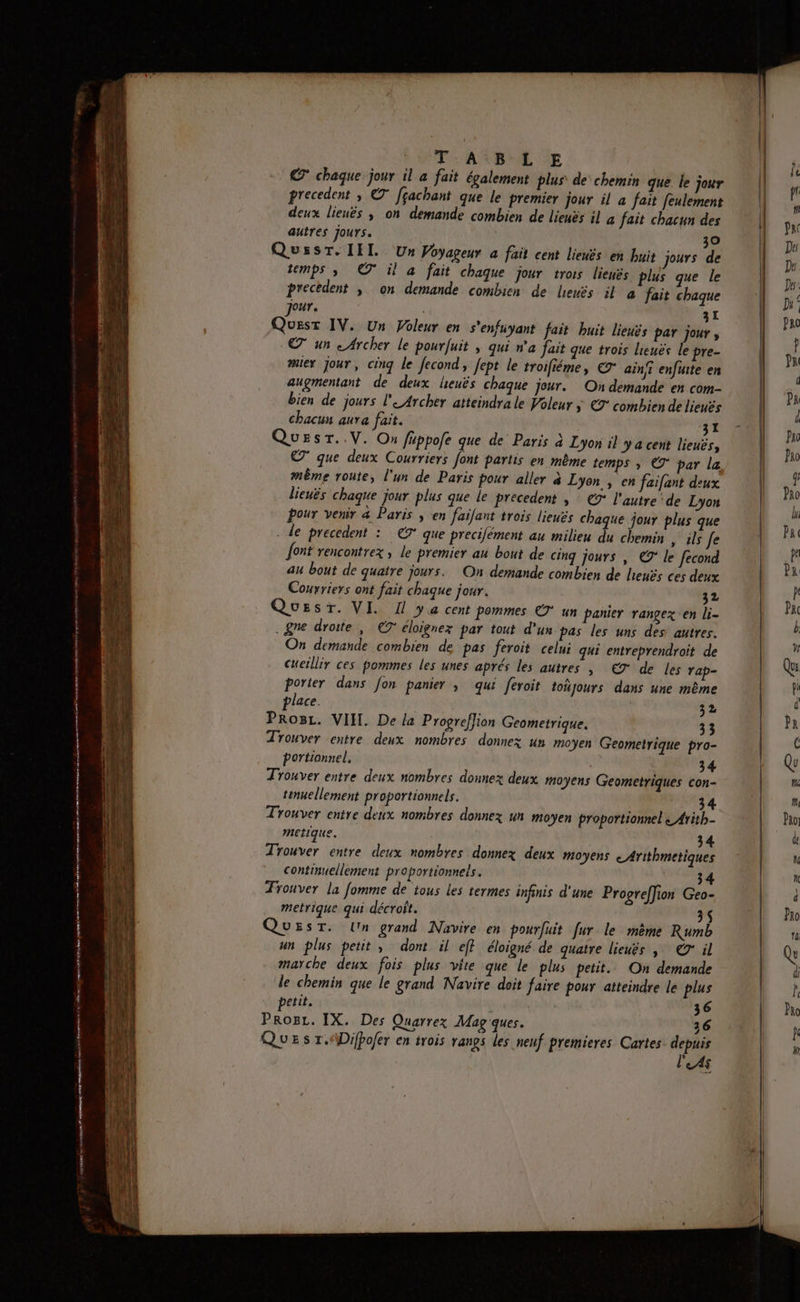 TABLE
& chaque jour il a fait également plus de chemin que le jour
precedent, & sçachant que le premier jour il a fait seulement
deux lieuës, on demande combien de lieuës il a fait chacun des
autres jours. 30
QUEST. III. Un Voyageur a fait cent lieuës en huit jours de
temps, & il a fait chaque jour trois lieuës plus que le
precedent, on demande combien de lieuës il a fait chaque
jour. 31
QUEST IV. Un Voleur en s'enfuyant fait huit lieuës par jour,
& un Archer le poursuit, qui n'a fait que trois lieuës le pre-
mier jour, cinq le second, sept le troisiéme, & ainsi ensuite en
augmentant de deux lieuës chaque jour. On demande en com-
bien de jours l'Archer atteindra le Voleur, & combien de lieuës
chacun aura fait. 31
QUEST. V. On suppose que de Paris à Lyon il y a cent lieuës,
& que deux Courriers sont partis en même temps, & par la
même route, l'un de Paris pour aller à Lyon, en faisant deux
lieuës chaque jour plus que le precedent, & l'autre de Lyon
pour venir à Paris, en faisant trois lieuës chaque jour plus que
le precedent : & que precisément au milieu du chemin, ils se
sont rencontrez, le premier au bout de cinq jours, & le second
au bout de quatre jours. On demande combien de lieuës ces deux
Courriers ont fait chaque jour. 32
QUEST. VI. Il y a cent pommes & un panier rangez en li-
gne droite, & éloignez par tout d'un pas les uns des autres.
On demande combien de pas feroit celui qui entreprendroit de
cueillir ces pommes les unes aprés les autres, & de les rap-
porter dans son panier, qui seroit toûjours dans une même
place. 32
PROBL. VIII. De la Progression Geometrique. 33
Trouver entre deux nombres donnez un moyen Geometrique pro-
portionnel. 34
Trouver entre deux nombres donnez deux moyens Geometriques con-
tinuellement proportionnels. 34
Trouver entre deux nombres donnez un moyen proportionnel Arith-
metique. 34
Trouver entre deux nombres donnez deux moyens Arithmetiques
continuellement proportionnels. 34
Trouver la somme de tous les termes infinis d'une Progression Geo-
metrique qui décroît. 35
QUEST. Un grand Navire en poursuit sur le même Rumb
un plus petit, dont il est éloigné de quatre lieuës, & il
marche deux fois plus vite que le plus petit. On demande
le chemin que le grand Navire doit faire pour atteindre le plus
petit. 36
PROBL. IX. Des Quarrez Mag ques. 36
QUEST. Disposer en trois rangs les neuf premieres Cartes depuis
l'As